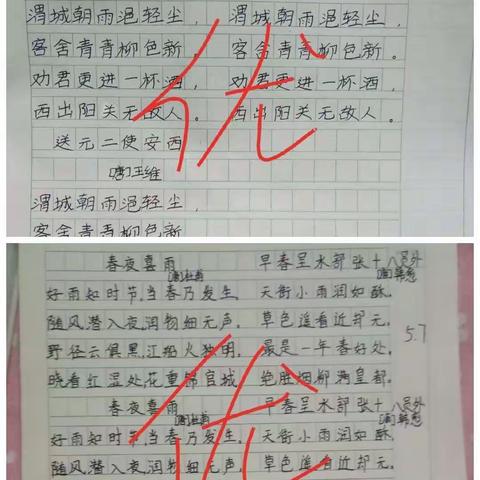 渭城朝雨浥轻尘， 渭城朝雨浥轻尘，
客舍青青柳色新， 客舍青青柳色新。
劝君更进一杯酒， 劝君更进一杯酒，
西出阳关无故人。 西出阳关无故人。
送元二使安西
[唐]王维
渭城朝雨浥轻尘，
客舍青青柳色新，
优
春夜喜雨 早春呈水部张十八员外
[唐]杜甫 [唐]韩愈
好雨知时节,当春乃发生。 天街小雨润如酥，
随风潜入夜,润物细无声。 草色遥看近却无。
野径云俱黑,江船火独明。 最是一年春好处，
晓看红湿处,花重锦官城 绝胜烟柳满皇都。
5.7
春夜喜雨 早春呈水部张十八员外
[唐]杜甫 [唐]韩愈
好雨知时节,当春乃发生。 天街小雨润如酥，
随风潜入夜,润物细无声。 草色遥看近却无。
优